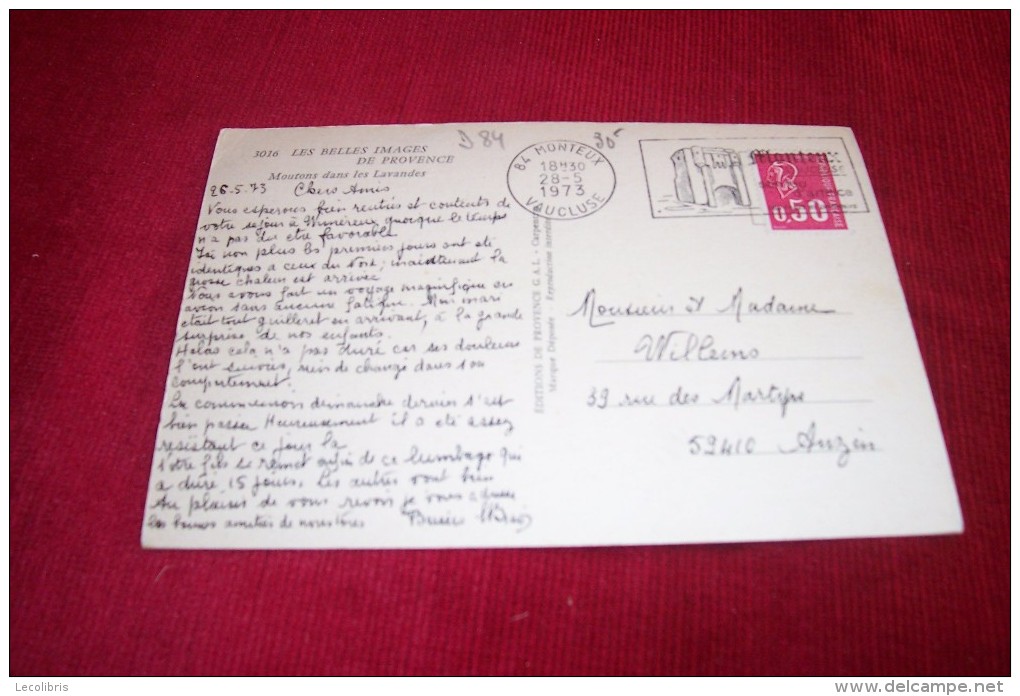 3016 LES BELLES IMAGES
DE PROVENCE
Moutons dans les Lavandes
D 84
30F
84 MONTEUX
18H30
28-5
1973
VAUCLUSE
Monteux
0,50
26.5.73 Chers Amis
Vous esperons bien rentrés et contents de
votre sejour à Wimereux quoique le temps
n'a pas du etre favorable
Ici non plus les premiers jours ont eté
identiques a ceux du Nord; maintenant la
grosse chaleur est arrivée
Nous avons fait un voyage magnifique en
avion sans aucune fatigue. Mon mari
etait tout guilleret en arrivant, à la grande
surprise de nos enfants.
Helas cela n'a pas duré car ses douleurs
l'ont suivies, rien de changé dans son
comportement.
La communion dimanche dernier s'est
bien passée Heureusement il a eté assez
resistant ce jour la
Votre fils se remet enfin de ce lumbago qui
a duré 15 jours. Les autres vont bien
Au plaisir de vous revoir je vous adresse
les bonnes amitiés de nous tous
EDITIONS DE PROVENCE G.A.L. -
Marque Déposée Reproduction interdite
Monsieur et Madame
Willems
39 rue des Martyrs
59410 Anzin
Lecolibris
www.delcampe.net